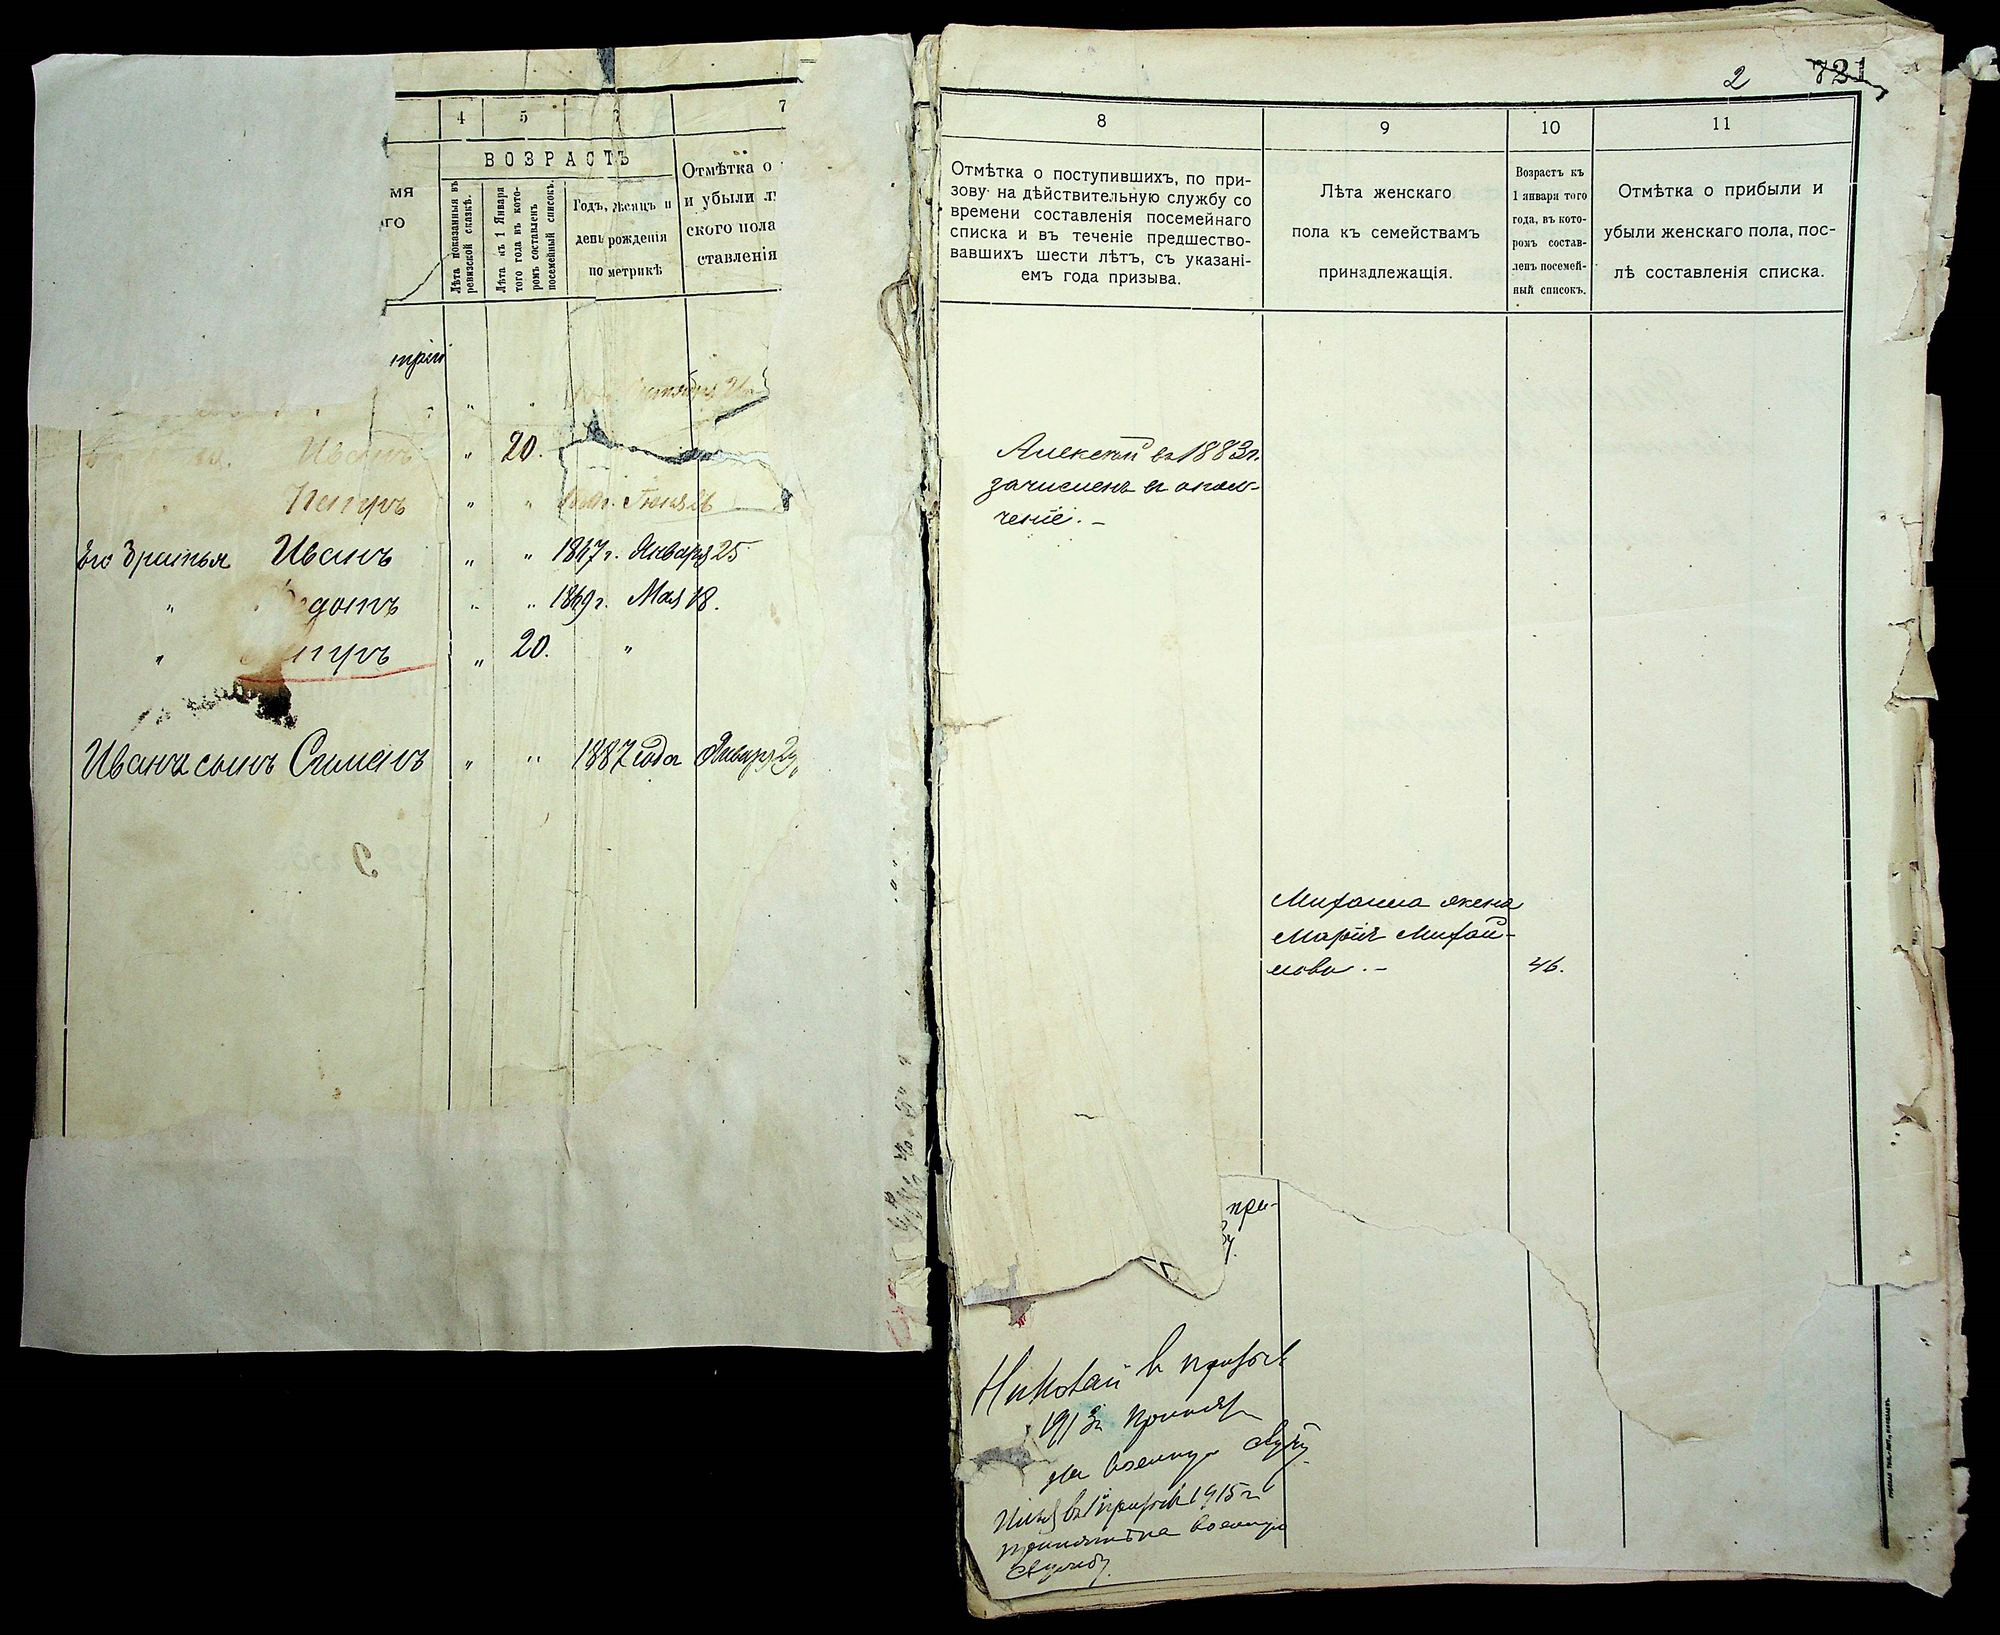 4 5 7
ВОЗРАСТЪ
Отмѣтка о
и убыли
ского пола
ставленія
мя
го
Лѣта показанныя въ
ревизской сказкѣ.
Лѣта къ 1 Января
того года въ кото-
ромъ составленъ
посемейный списокъ.
Годъ, мѣсяцъ и
день рожденія
по метрикѣ
Иванъ „ 20.
Петръ „ „
Его братья Иванъ „ „ 1867 г. Января 25
„ Федотъ „ „ 1869 г. Мая 18.
„ Петръ „ 20. „
Ивана сынъ Симеонъ „ „ 1887 года Января
2 721
8 9 10 11
Отмѣтка о поступившихъ, по при-
зову на дѣйствительную службу со
времени составленія посемейнаго
списка и въ теченіе предшество-
вавшихъ шести лѣтъ, съ указані-
емъ года призыва.
Лѣта женскаго
пола къ семействамъ
принадлежащія.
Возрастъ къ
1 января того
года, въ кото-
ромъ состав-
ленъ посемей-
ный списокъ.
Отмѣтка о прибыли и
убыли женскаго пола, пос-
лѣ составленія списка.
Алексѣй въ 1883 г.
зачисленъ въ опол-
ченіе. –
Михаила жена
Марія Михай-
лова. – 46.
при-
Николай въ призывъ
1913 г. принятъ
на военную службу
Илья въ призывъ 1915 г.
принятъ на военную
службу.